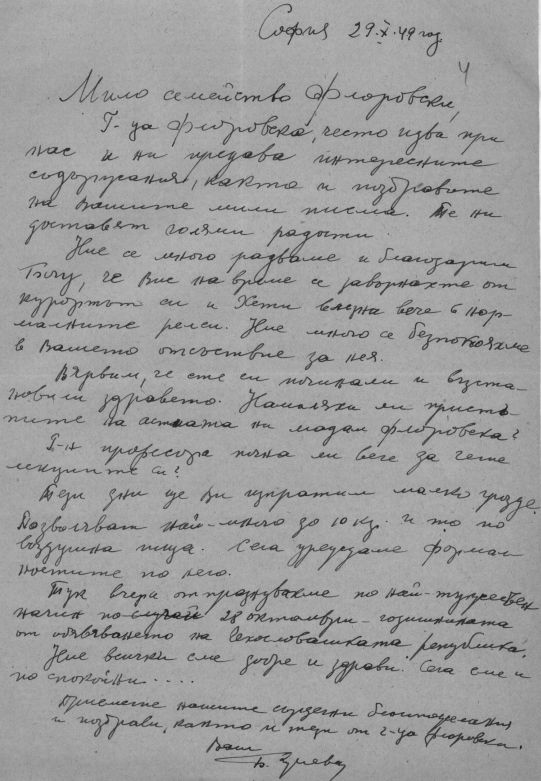 София 29.X.49 год.
4
Мило семейство Флоровски,
Г-ца Флоровска, често идва при
нас и ни предава интересните
съдържания, както и поздравите
на Вашите мили писма. Те ни
доставят големи радости.
Ние се много радваме и благодарим
Богу, че Вие на време се завърнахте от
курортът си и Хети влезна вече в нор-
малните релси. Ние много се безпокояхме
в Вашето отсъствие за нея.
Вярвам, че сте си починали и възста-
новили здравето. Намаляха ли пристъ-
пите на астмата на мадам Флоровска?
Г-н професора почна ли вече да чете
лекциите си?
Тези дни ще Ви изпратим малко грозде.
Позволяват най-много до 10 кг. и то по
въздушна поща. Сега уреждаме формал
ностите по него.
Тук вчера отпразнувахме по най-тържествен
начин по случай 28 октомври - годишнината
от обявяването на Чехословашката република.
Ние всички сме добре и здрави. Сега сме и
по спокойни....
Приемете нашите сърдечни благопожелания
и поздрави, както и тези от г-ца Флоровска.
Ваш